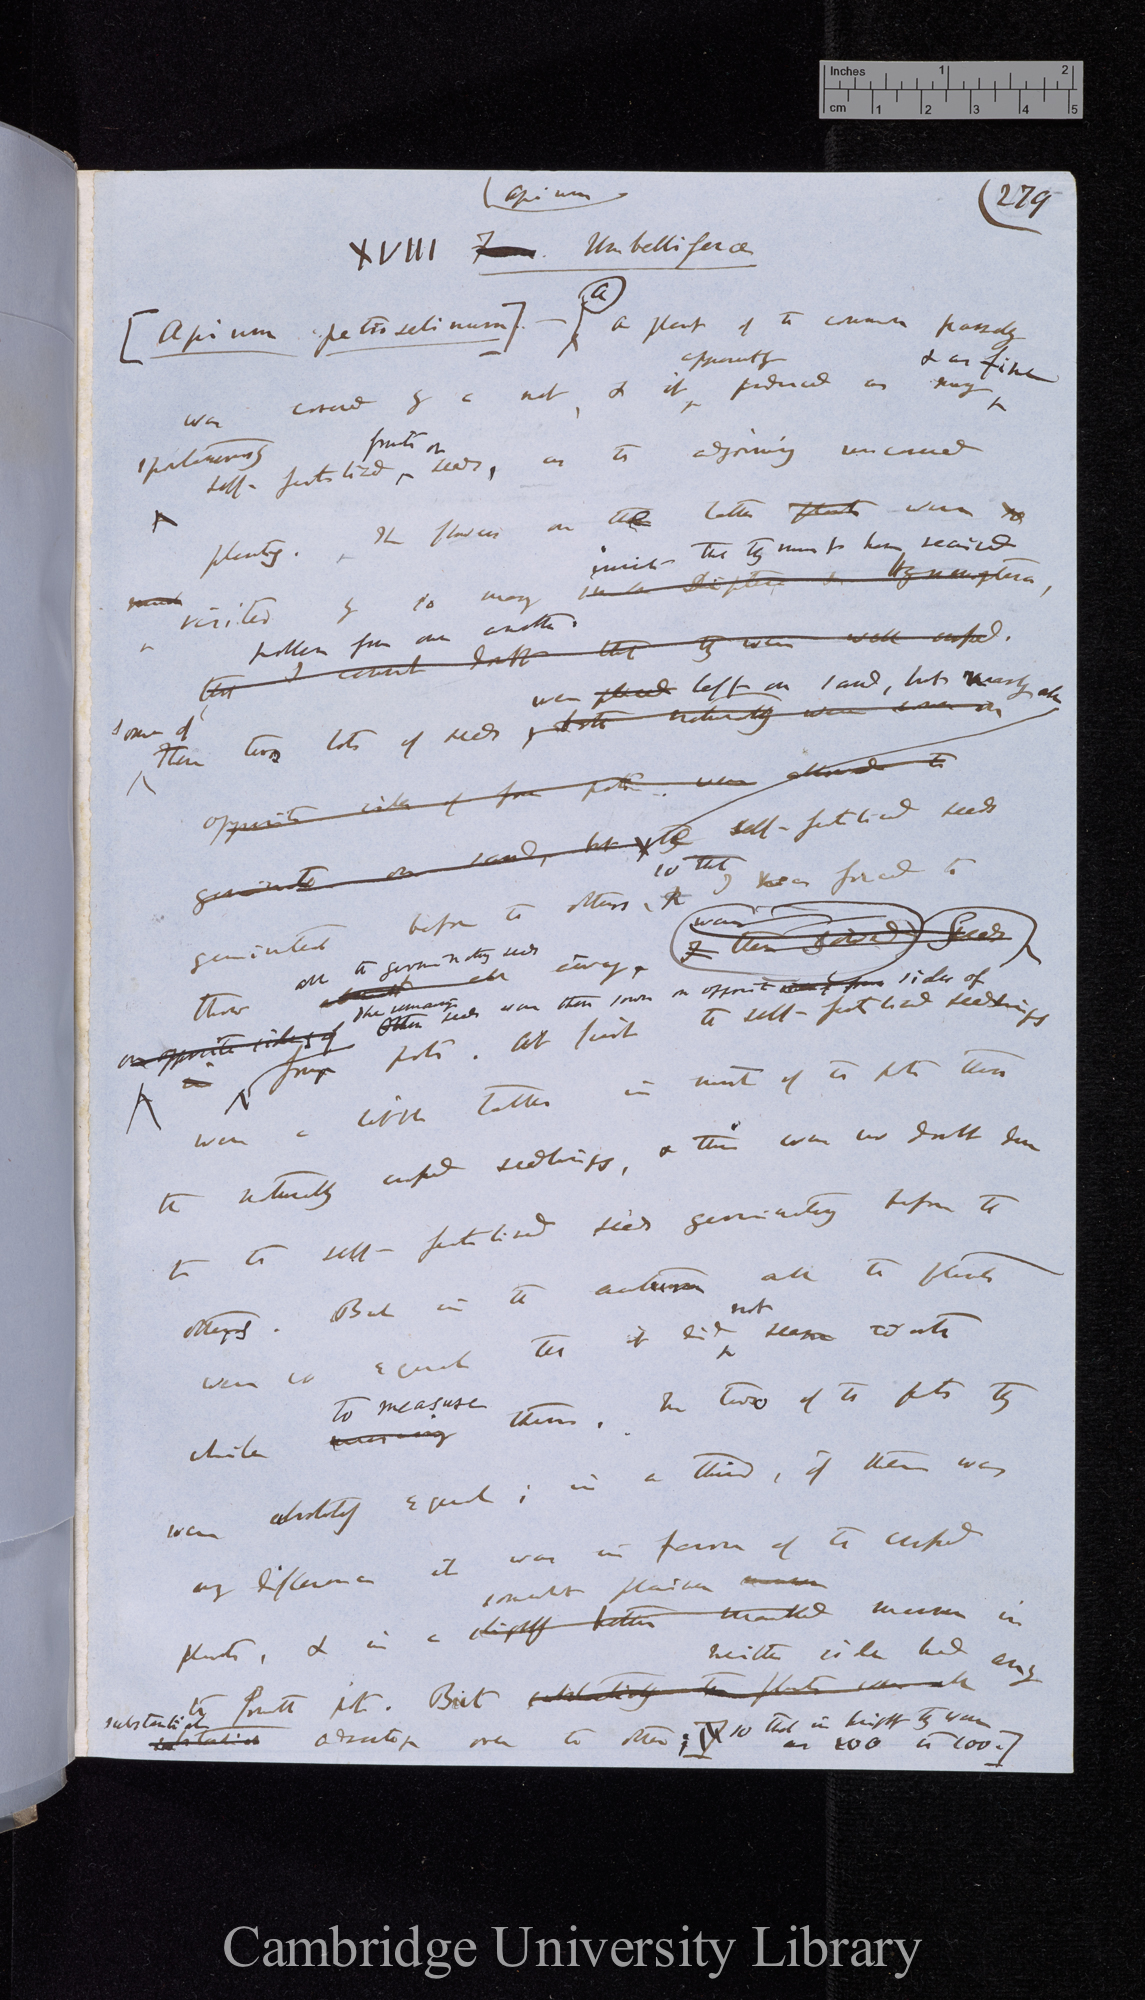 Inches 1 2
cm 1 2 3 4 5
Apium
279
XVIII Umbelliferæ
[Apium petroselinum]. — (a) A plant of the common parsley
apparently & as fine
was covered by a net, & it produced as many
spontaneously fruits or
self-fertilised seeds, as the adjoining uncovered
plants. The flowers on the latter plants were so
insects that they must have received
much visited by so many
pollen from one another.
that I cannot doubt that they were well crossed.
were placed left on sand, but nearly all
some of
These two lots of seeds both naturally were sown on
opposite sides of four pots were allowed to
germinate on sand, but the self-fertilised seeds
so that
germinated before the others, I was forced to
were
all the germinating seeds
throw away. Seeds
The remaining seeds were then sown on opposite sides of
on opposite sides of
in four pots. At first the self-fertilised seedlings
were a little taller in most of the pots than
the naturally crossed seedlings, & this was no doubt due
to the self-fertilised seeds germinating before the
others. But in the autumn all the plants
not
were so equal that it did seem worth
to measure
while measuring them. In two of the pots they
were absolutely equal; in a third, if there was
any difference it was in favour of the crossed
somewhat plainer
plants, & in a slightly better marked manner in
neither side had any
the fourth pot. But substantially the plants were all
substantial
advantage over the other; so that in height they were
as 100 to 100.]
Cambridge University Library